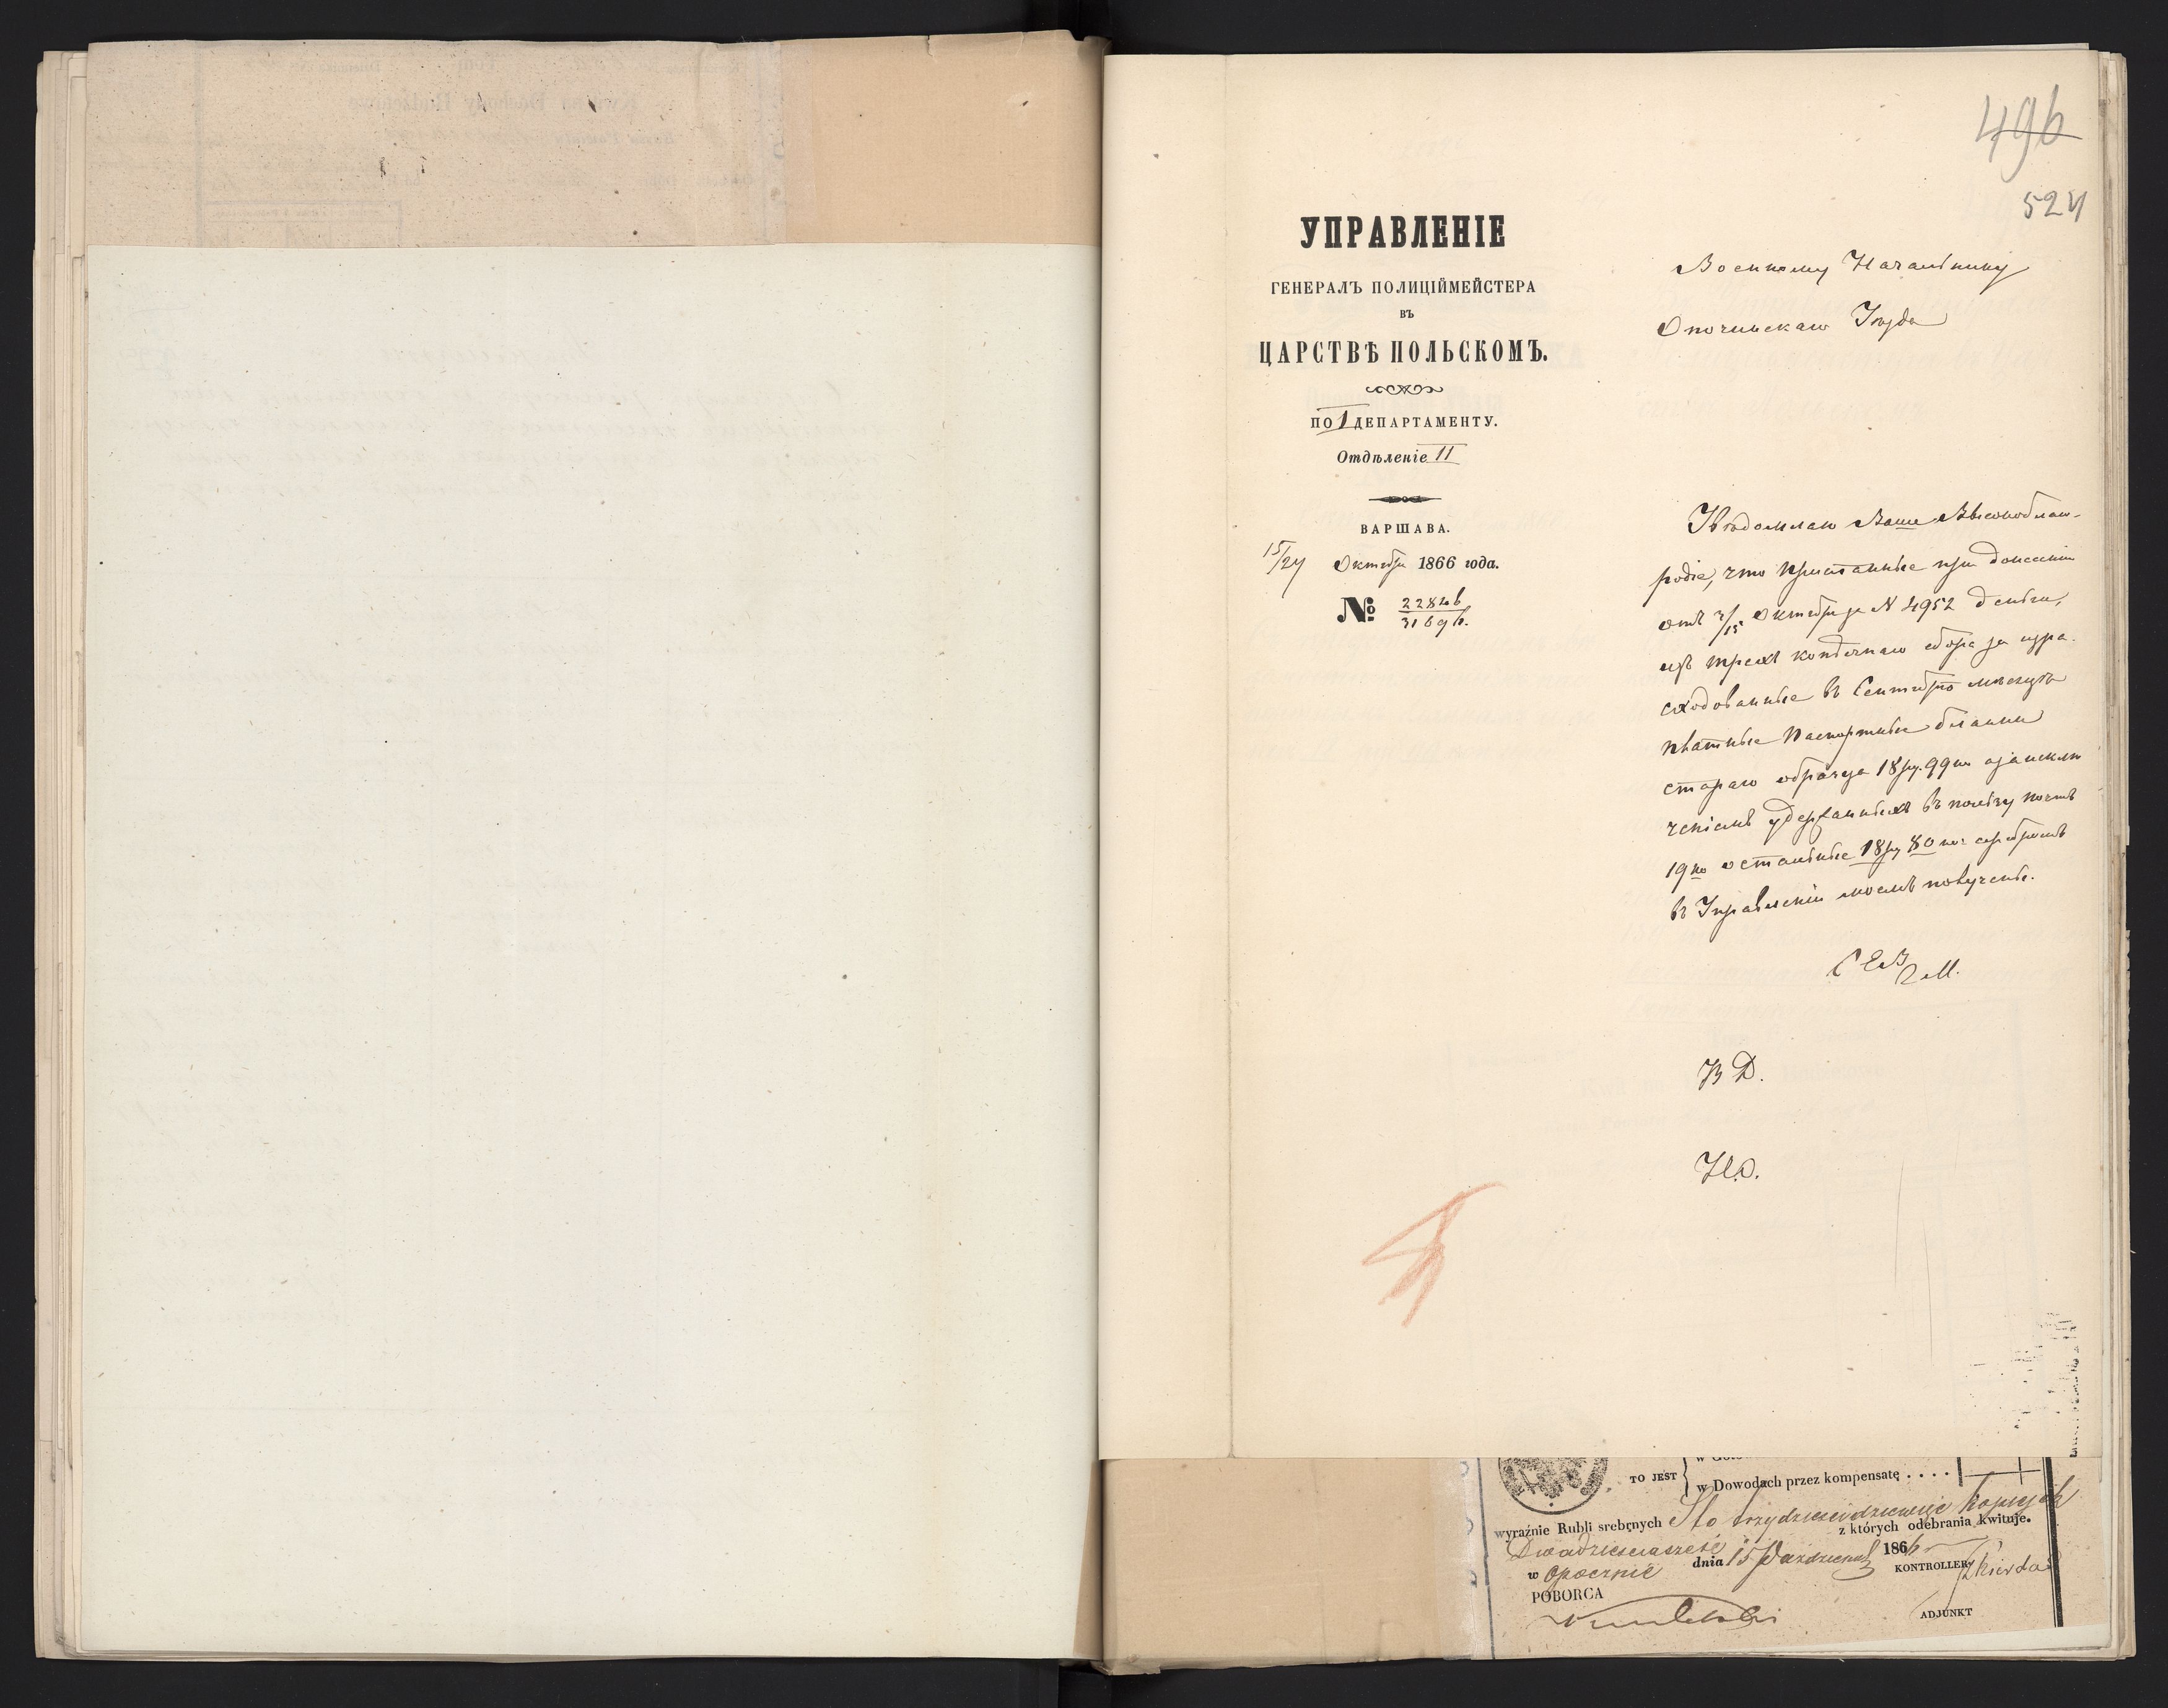 496
524
УПРАВЛЕНІЕ
ГЕНЕРАЛЪ ПОЛИЦІЙМЕЙСТЕРА
ВЪ
ЦАРСТВѢ ПОЛЬСКОМЪ.
ПО I ДЕПАРТАМЕНТУ.
Отдѣленіе II
ВАРШАВА.
15/27 Октября 1866 года.
№
Военному Начальнику
Опочинскаго Уѣзда
Увѣдомляю Ваше Высокоблаго-
родіе, что присланные при донесеніи
отъ 3/15 Октября за N 4952 деньги,
изъ трехъ копѣечнаго сбора за изра-
сходованные въ Сентябрѣ мѣсяцѣ
платные паспортные бланки
стараго образца 18 ру. 99 ко. за исклю
ченіемъ удержанныхъ въ пользу почтъ
19 ко остальные 18 ру 80 коп серебромъ
въ Управленіи моемъ получены.
В Д.
TO JEST
w Dowodach przez kompensatę . . . .
wyraźnie Rubli srebrnych Sto trzydzieścidziewięć kopiejek
Dwadzieściasześć z których odebrania kwituje.
w Opocznie dnia 15 Październ 1866
POBORCA
KONTROLLER
ADJUNKT